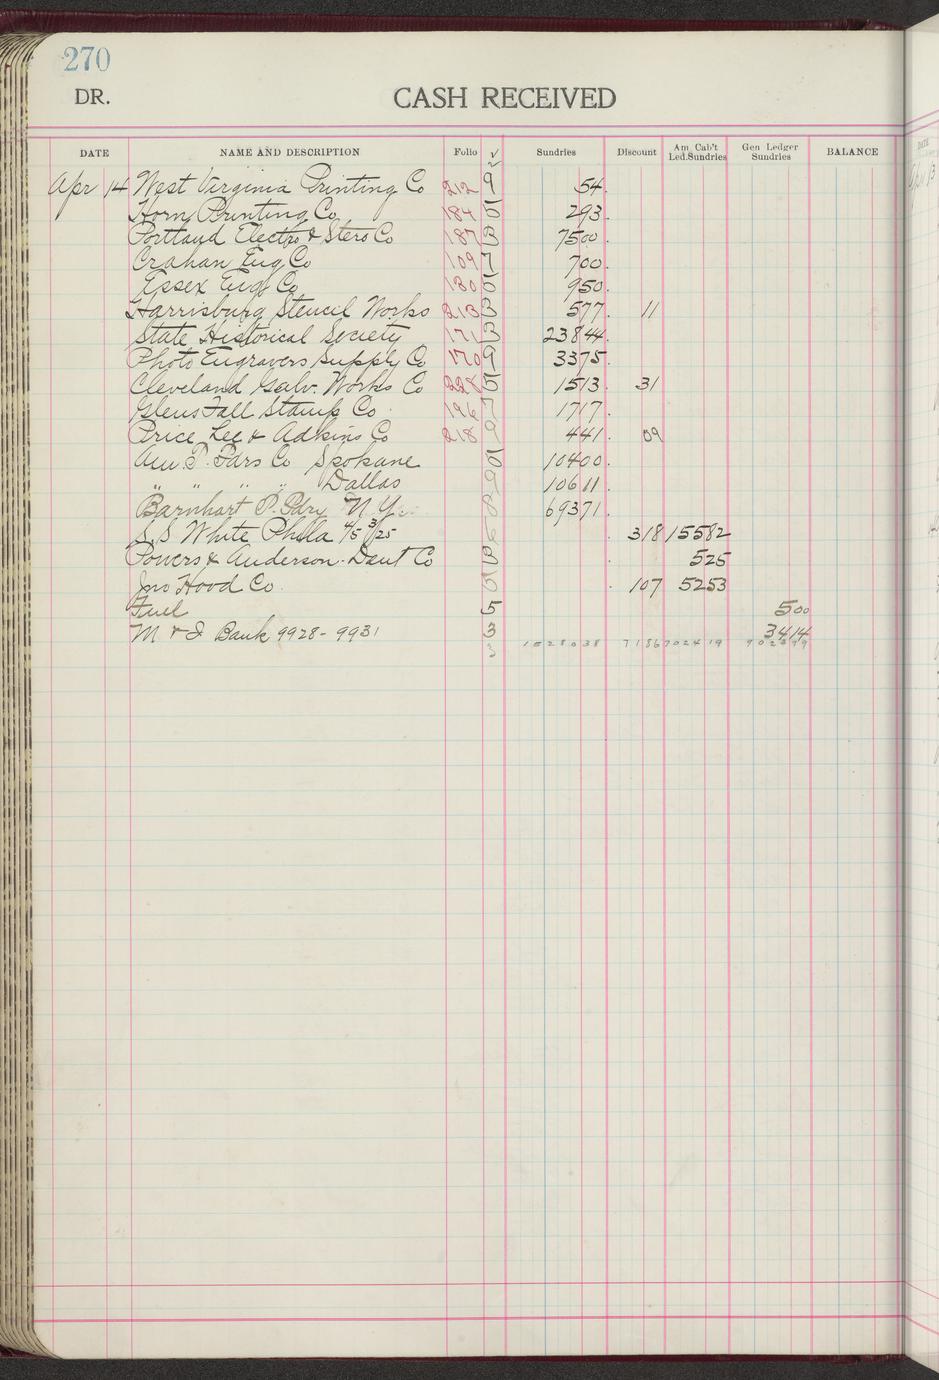 270
DR. CASH RECEIVED
DATE NAME AND DESCRIPTION Folio √ Sundries Discount Am Cab't Led.Sundries Gen Ledger Sundries BALANCE
Apr 14 West Virginia Printing Co 212 9 54
Horn Printing Co 184 5 293
Portland Electro & Stero Co 187 3 7500
Crahan Eng Co 109 7 700
Essex Eng Co 130 5 950
Harrisburg Stencil Works 213 3 577 11
State Historical Society 171 3 23844
Photo Engravers Supply Co 170 9 3375
Cleveland Galv. Works Co 228 5 1513 31
Glens Fall Stamp Co 196 7 1717
Price Lee & Adkins Co 218 9 441 09
Am. T. Fdrs Co Spokane 10400
" " " " Dallas 9 10611
Barnhart T. Fdry N.Y. 8 69371
S.S White Phila 4/5 3/25 318 15582
Powers & Anderson Dent Co 3 525
Jno Hood Co 5 107 5253
Fuel 5 500
M & I Bank 9928-9931 3 3414
3 1528038 7186 702419 902399